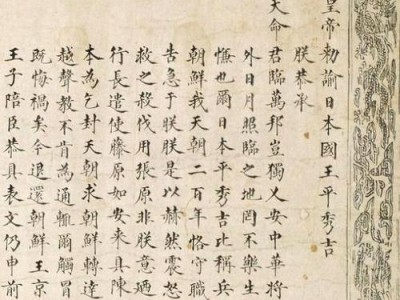 皇帝勅諭日本國王平秀吉
朕恭承
天命君臨萬邦豈獨乂安中華将
外日月照臨之地罔不樂生
慊也爾日本平秀吉比稱兵
朝鮮我天朝二百年恪守職
告急于朕朕是以赫然震怒
救之殺伐用張原非朕意廼
行長遣使藤原如安来具陳
本為乞封天朝求朝鮮轉達
越聲教不肯為通輒爾觸冒
既悔禍矣今退還朝鮮王京
王子陪臣恭具表文仍申前